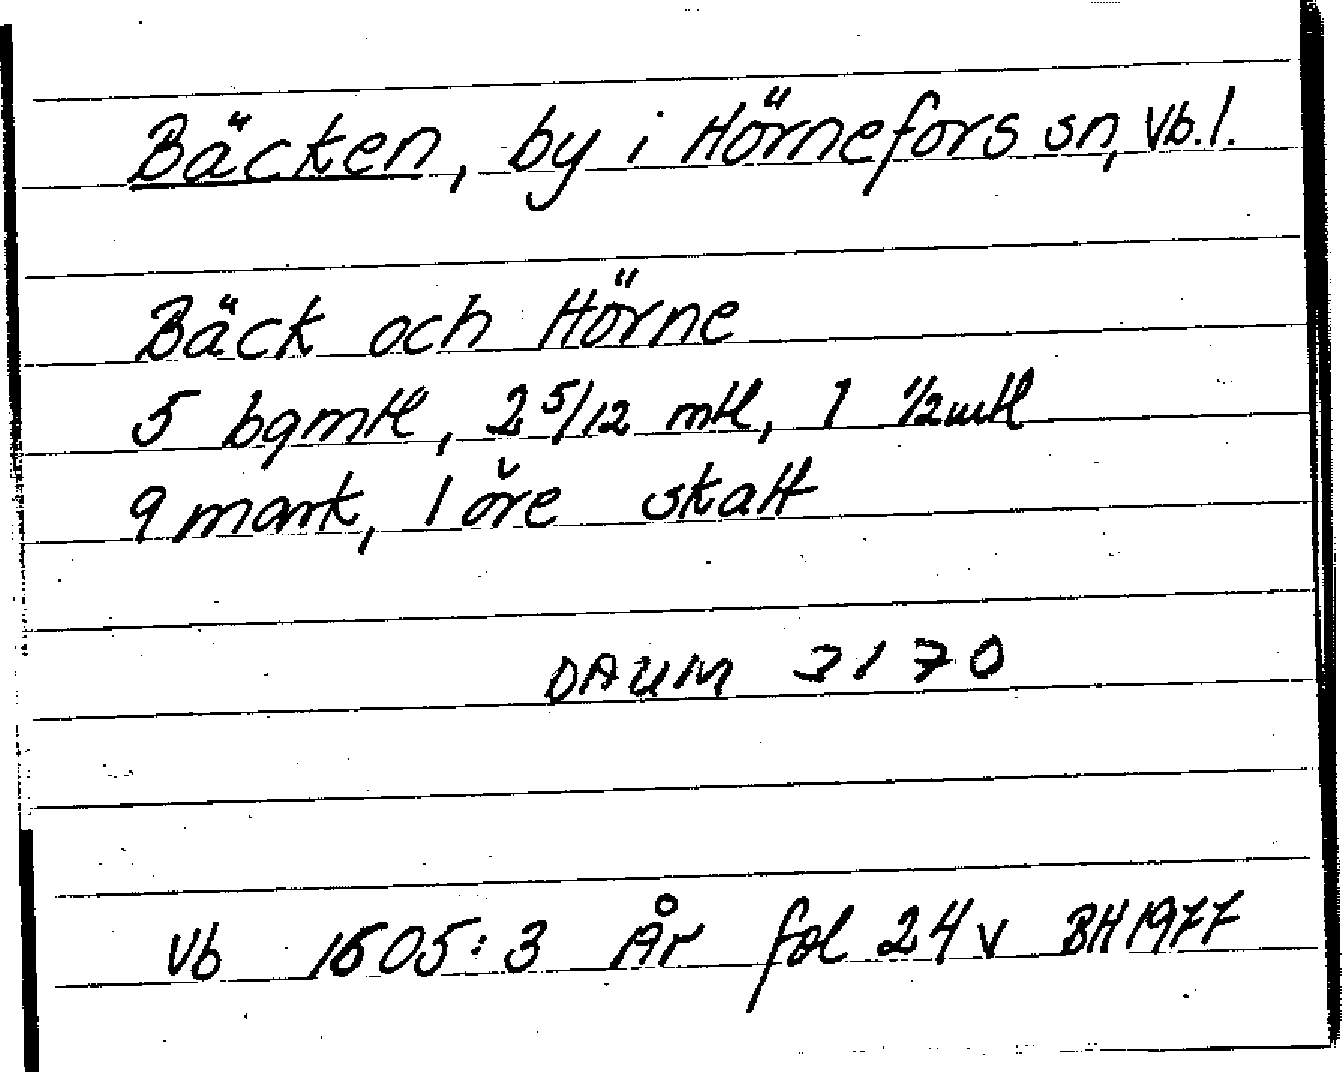 Bäcken, by i Hörnefors sn, Vb.l.
Bäck och Hörne
5 bgmtl, 2 5/12 mtl, 1 1/2 mtl
9 mark, 1 öre skatt
DAUM 3170
Vb 1605:3 År fol 24 v BH 1977